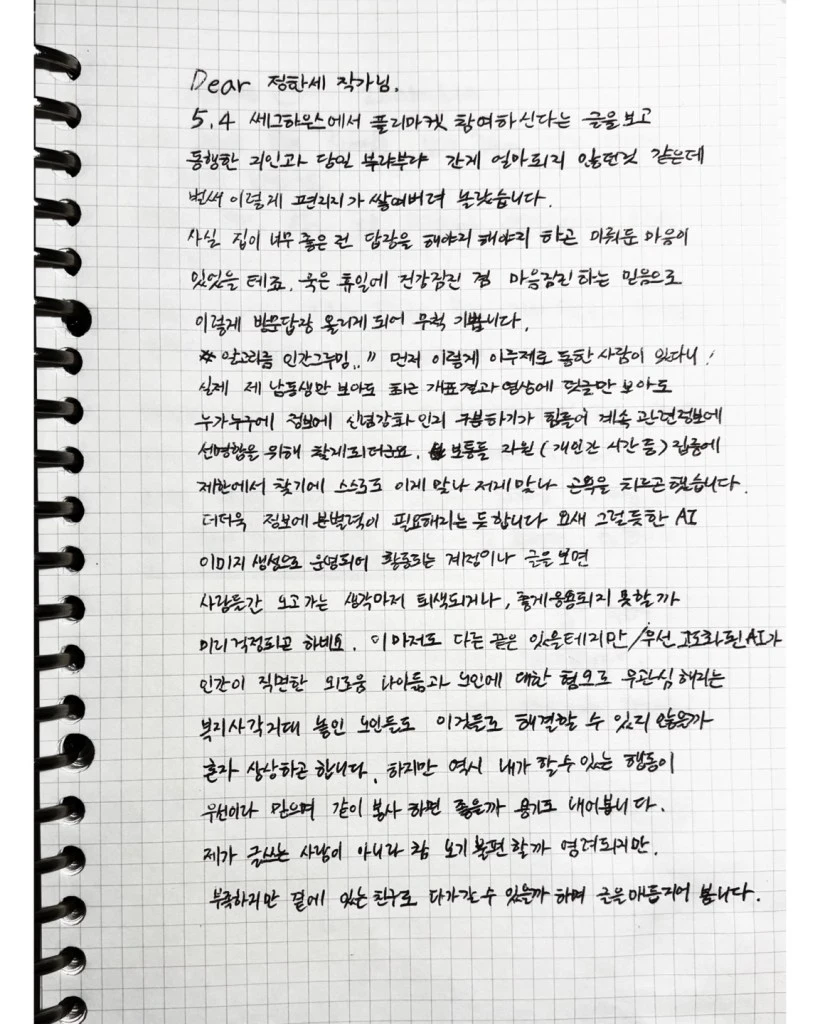 Dear 정한세 작가님.
5.4 쎄그하우스에서 플리마켓 참여하신다는 글을 보고
동행한 지인과 당일 부랴부랴 간게 얼마되지 않던것 같은데
벌써 이렇게 편지지가 쌓여버려 놀랐습니다.
사실 집이 너무 좋은 건 답장을 해야지 해야지 하곤 미뤄둔 마음이
있었을 테죠. 묵은 휴일에 건강검진 겸 마음검진 하는 믿음으로
이렇게 방문답장 올리게 되어 무척 기쁩니다.
" 알고리즘 인간그루밍.. " 먼저 이렇게 이주제로 통한 사람이 있다니!
실제 제 남동생만 보아도 최근 개표결과 영상에 덧글만 보아도
누가누구에 정보에 신념강화 인지 구분하기가 힘들어 계속 관련정보에
선명함을 위해 찾게되더군요. 보통들 자원 (개인간 시간 등) 집중에
제한에서 찾기에 스스로도 이게 맞나 저게 맞나 곤욕을 치르곤 했습니다.
더더욱 정보에 분별력이 필요해지는 듯 합니다 요새 그럴듯한 AI
이미지 생성으로 운영되어 활동되는 계정이나 글을 보면
사람들간 오고가는 생각마저 퇴색되거나, 좋게응용되지 못할까
미리 걱정되곤 하네요. 이마저도 다른 끝은 있을테지만 / 우선 고도화된 AI가
인간이 직면한 외로움 나이듦과 노인에 대한 혐오로 무관심해지는
복지사각지대 놓인 노인들도 이것들로 해결할 수 있지 않을까
혼자 상상하곤 합니다. 하지만 역시 내가 할 수 있는 행동이
우선이라 믿으며 같이 봉사 하면 좋을까 용기도 내어봅니다.
제가 글쓰는 사람이 아니라 참 보기 불편할까 염려되지만.
부족하지만 곁에 있는 친구로 다가갈 수 있을까 하며 글을 매듭지어 봅니다.